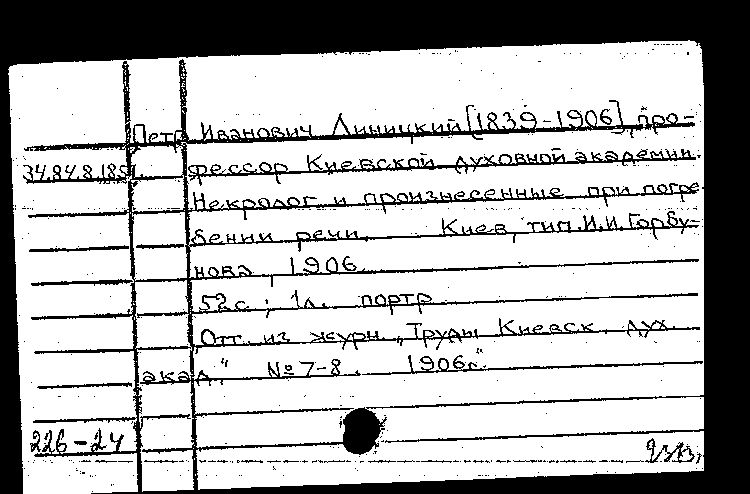 Петр Иванович Линицкий [1839-1906], про=
34.84.8.185 фессор Киевской духовной академии.
Некролог и произнесенные при погре
бении речи. Киев, тип. И.И. Горбу-
нова, 1906
52 с.; 1 л. портр
"Отт. из журн. "Труды Киевск. дух.
акад." № 7-8. 1906г."
226-24